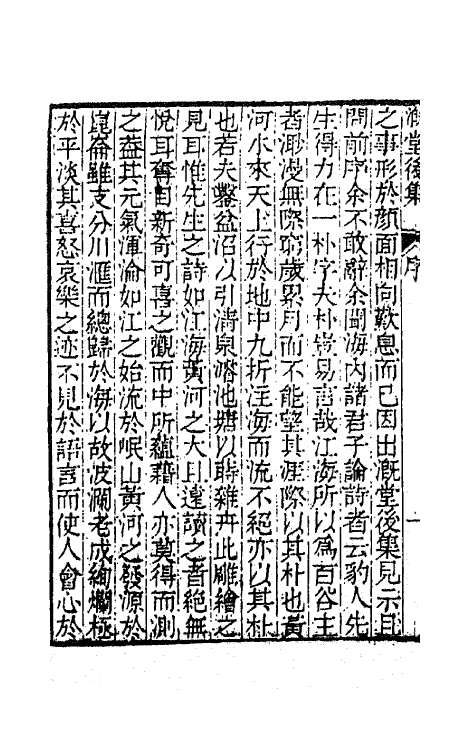 溉堂後集 序 一
之事形於顏面相向歎息而已因出溉堂後集見示且
問前序余不敢辭余聞海內諸君子論詩者云豹人先
生得力在一朴字夫朴豈易言哉江海所以為百谷王
者渺漫無際窮歲累月而不能望其涯際以其朴也黃
河小來天上行於地中九折注海而流不絕亦以其朴
也若夫鑿盆沼以引清泉濬池塘以時雜卉此雕繪之
見耳惟先生之詩如江海黃河之大且遠讀之者絕無
悅耳奪目新奇可喜之觀而中所蘊藉人亦莫得而測
之葢其元氣渾淪如江之始流於岷山黃河之發源於
崑崙雖支分川滙而總歸於海以故波瀾老成絢爛極
於平淡其喜怒哀樂之迹不見於語言而使人會心於